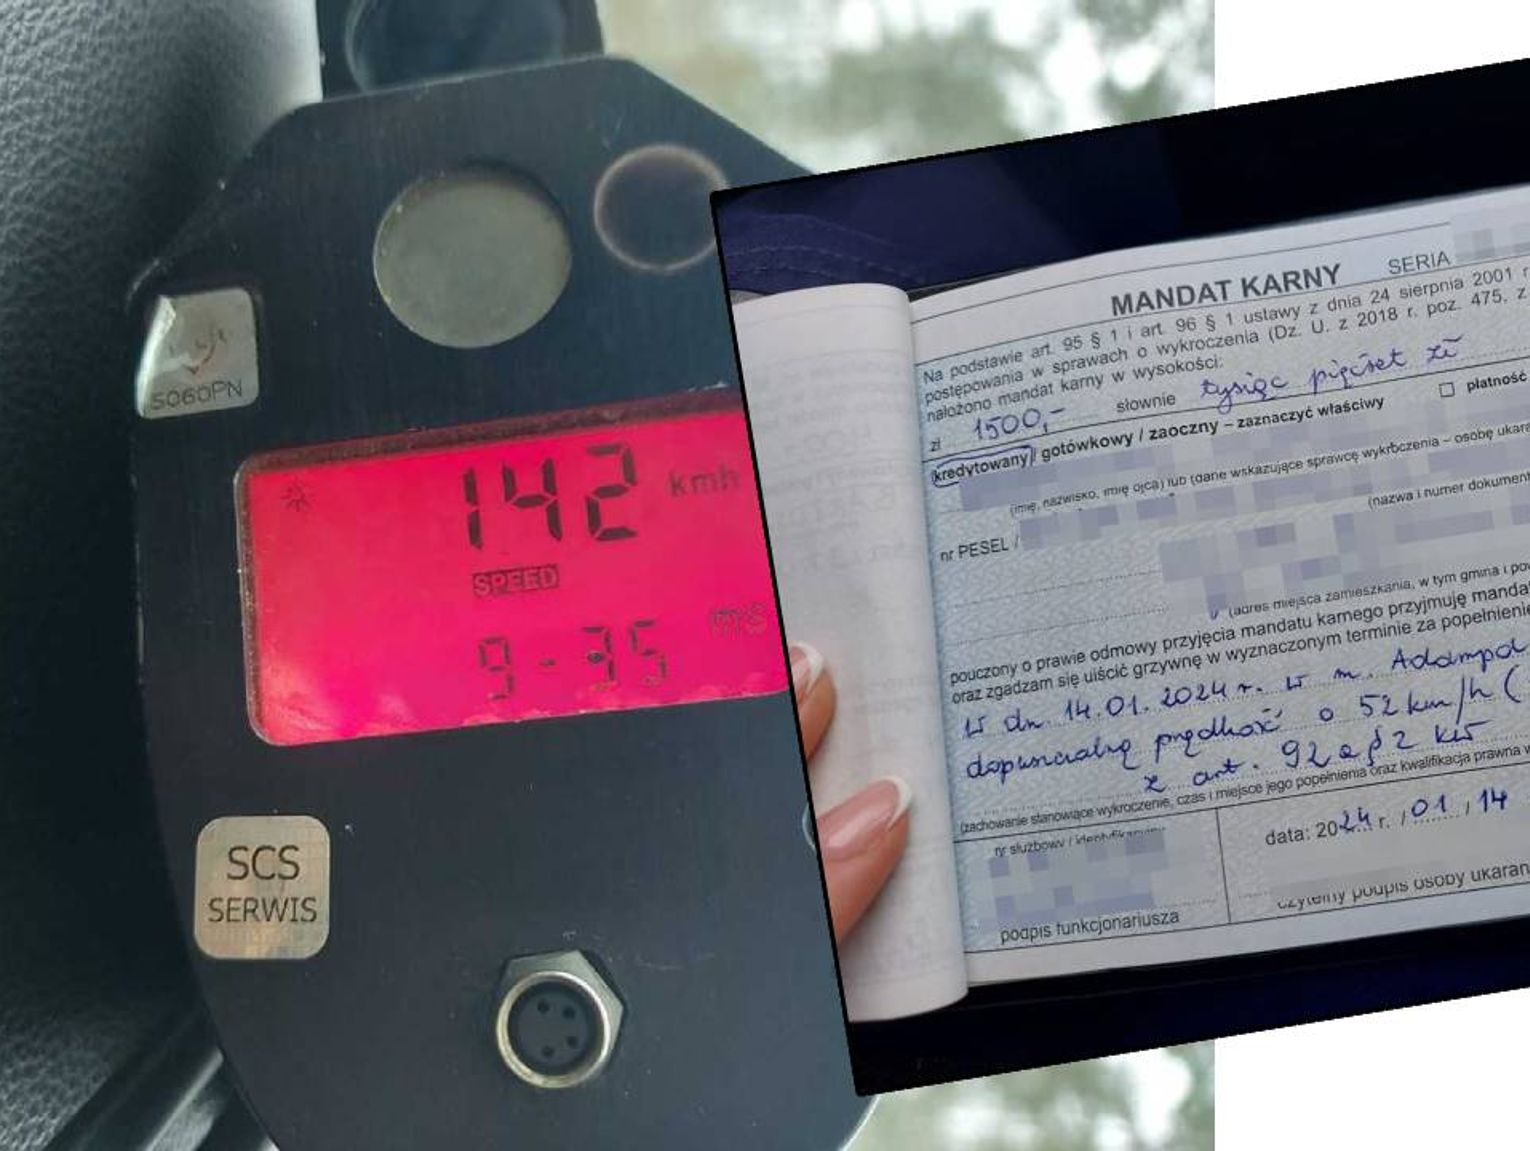 5060PN
142 kmh
SPEED
9-35 ms
SCS
SERWIS
MANDAT KARNY SERIA
Na podstawie art. 95 § 1 i art. 96 § 1 ustawy z dnia 24 sierpnia 2001 r
postępowania w sprawach o wykroczenia (Dz. U. z 2018 r. poz. 475, z
nałożono mandat karny w wysokości:
zł 1500,- słownie tysiąc pięćset zł
kredytowany / gotówkowy / zaoczny – zaznaczyć właściwy ☐ płatność
(imię, nazwisko, imię ojca) lub (dane wskazujące sprawcę wykroczenia – osobę ukara
(nazwa i numer dokument
nr PESEL /
(adres miejsca zamieszkania, w tym gmina i po
pouczony o prawie odmowy przyjęcia mandatu karnego przyjmuję manda
oraz zgadzam się uiścić grzywnę w wyznaczonym terminie za popełnienie
W dn. 14.01.2024 r. w m. Adampol
dopuszczalną prędkość o 52 km/h (
z art. 92a § 2 kw
(zachowanie stanowiące wykroczenie, czas i miejsce jego popełnienia oraz kwalifikacja prawna w
nr służbowy / identyfikacyjny
data: 2024 r. / 01 / 14
podpis funkcjonariusza
czytelny podpis osoby ukaran